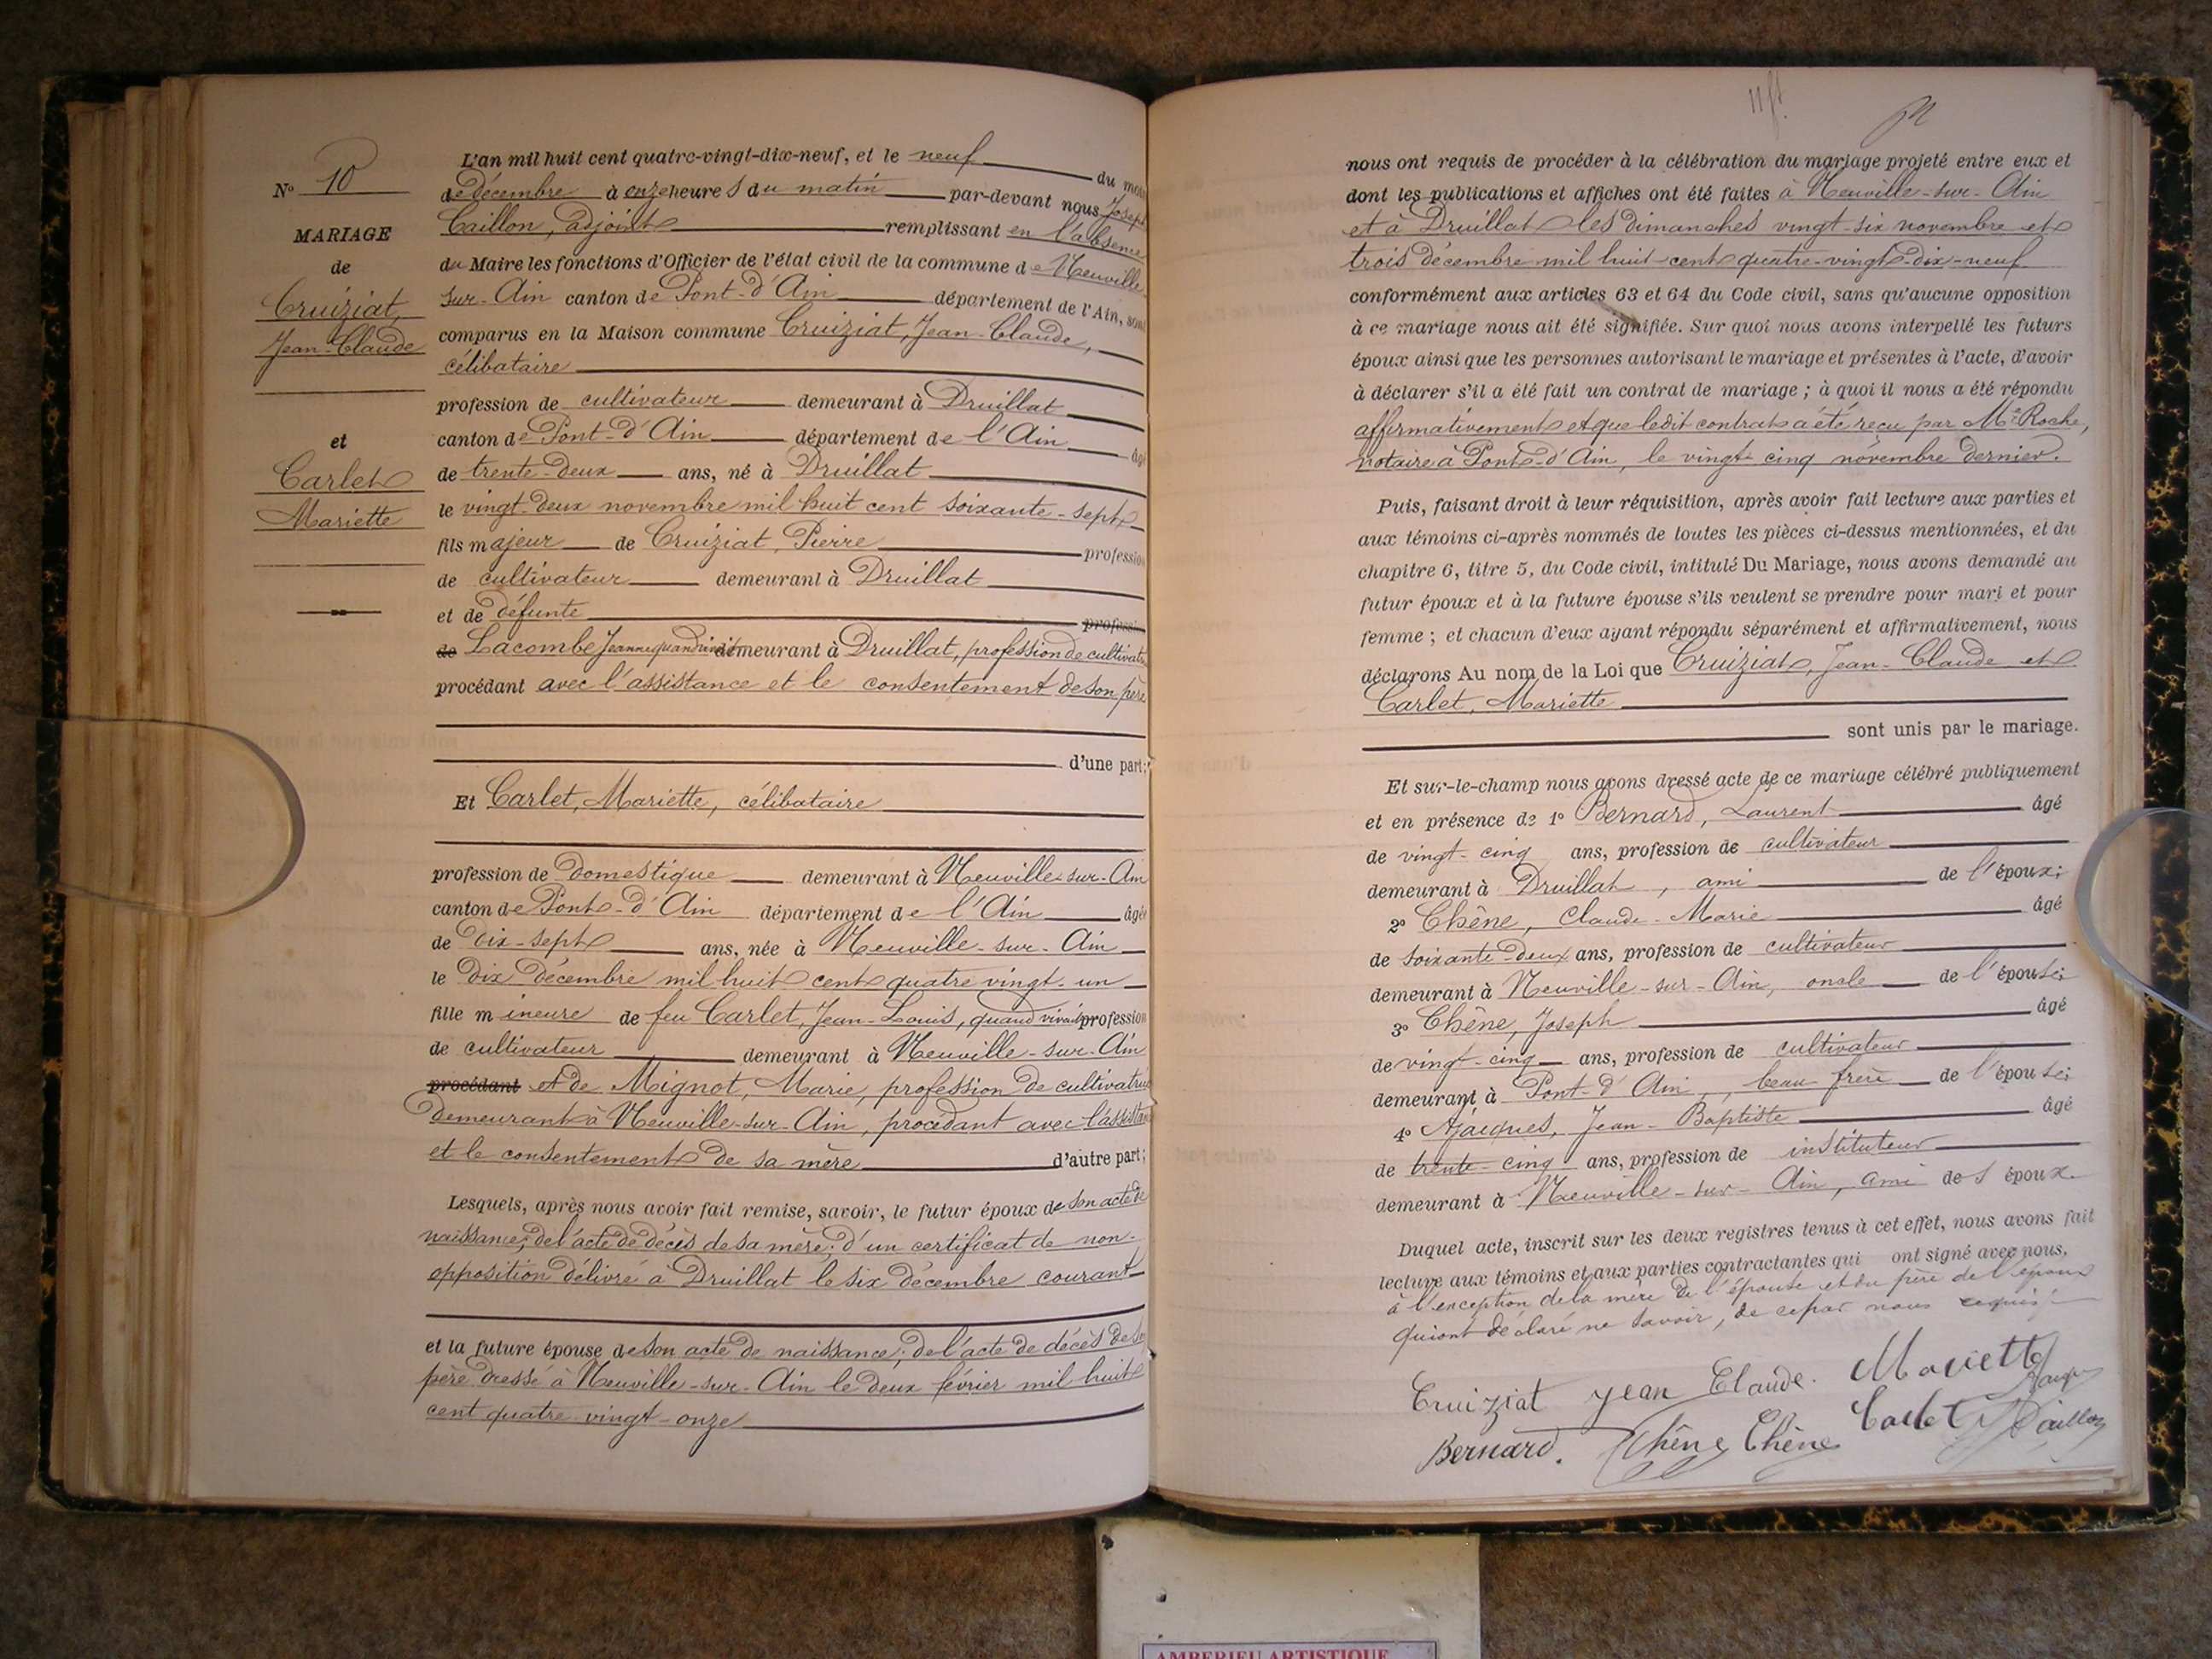 N° 10
MARIAGE
de
Cruiziat,
Jean-Claude
et
Carlet
Mariette
L'an mil huit cent quatre-vingt-dix-neuf, et le neuf du mois
de décembre à onze heures du matin par-devant nous Joseph
Caillon, adjoint remplissant en l'absence
du Maire les fonctions d'Officier de l'état civil de la commune de Neuville-
sur-Ain canton de Pont-d'Ain département de l'Ain, sont
comparus en la Maison commune Cruiziat, Jean-Claude,
célibataire
profession de cultivateur demeurant à Druillat
canton de Pont-d'Ain département de l'Ain âgé
de trente-deux ans, né à Druillat
le vingt-deux novembre mil huit cent soixante-sept
fils majeur de Cruiziat, Pierre profession
de cultivateur demeurant à Druillat
et de défunte profession
de Lacombe Jeanne quand vivait demeurant à Druillat, profession de cultivatr
procédant avec l'assistance et le consentement de son père
d'une part;
Et Carlet, Mariette, célibataire
profession de domestique demeurant à Neuville-sur-Ain
canton de Pont-d'Ain département de l'Ain âgée
de dix-sept ans, née à Neuville-sur-Ain
le dix décembre mil huit cent quatre vingt-un
fille mineure de feu Carlet, Jean-Louis, quand vivait profession
de cultivateur demeurant à Neuville-sur-Ain
procédant et de Mignot, Marie, profession de cultivatrice
demeurant à Neuville-sur-Ain, procédant avec l'assistance
et le consentement de sa mère d'autre part;
Lesquels, après nous avoir fait remise, savoir, le futur époux de son acte de
naissance; de l'acte de décès de sa mère; d'un certificat de non-
opposition délivré à Druillat le six décembre courant
et la future épouse de son acte de naissance; de l'acte de décès de son
père dressé à Neuville-sur-Ain le deux février mil huit
cent quatre vingt-onze
nous ont requis de procéder à la célébration du mariage projeté entre eux et
dont les publications et affiches ont été faites à Neuville-sur-Ain
et à Druillat les dimanches vingt-six novembre et
trois décembre mil huit cent quatre-vingt-dix-neuf
conformément aux articles 63 et 64 du Code civil, sans qu'aucune opposition
à ce mariage nous ait été signifiée. Sur quoi nous avons interpellé les futurs
époux ainsi que les personnes autorisant le mariage et présentes à l'acte, d'avoir
à déclarer s'il a été fait un contrat de mariage; à quoi il nous a été répondu
affirmativement et que ledit contrat a été reçu par Me Roche,
notaire à Pont-d'Ain, le vingt-cinq novembre dernier.
Puis, faisant droit à leur réquisition, après avoir fait lecture aux parties et
aux témoins ci-après nommés de toutes les pièces ci-dessus mentionnées, et du
chapitre 6, titre 5, du Code civil, intitulé Du Mariage, nous avons demandé au
futur époux et à la future épouse s'ils veulent se prendre pour mari et pour
femme; et chacun d'eux ayant répondu séparément et affirmativement, nous
déclarons Au nom de la Loi que Cruiziat, Jean-Claude et
Carlet, Mariette
sont unis par le mariage.
Et sur-le-champ nous avons dressé acte de ce mariage célébré publiquement
et en présence de 1° Bernard, Laurent âgé
de vingt-cinq ans, profession de cultivateur
demeurant à Druillat, ami de l'époux;
2° Chêne, Claude-Marie âgé
de soixante-deux ans, profession de cultivateur
demeurant à Neuville-sur-Ain, oncle de l'épouse;
3° Chêne, Joseph âgé
de vingt-cinq ans, profession de cultivateur
demeurant à Pont-d'Ain, beau-frère de l'épouse;
4° Jean-Baptiste âgé
de trente-cinq ans, profession de instituteur
demeurant à Neuville-sur-Ain, ami des époux.
Duquel acte, inscrit sur les deux registres tenus à cet effet, nous avons fait
lecture aux témoins et aux parties contractantes qui ont signé avec nous,
à l'exception de la mère de l'épouse et du père de l'époux
qui ont déclaré ne savoir, de ce par nous requis.
Cruiziat Jean Claude. Mariette
Bernard. Chêne Chêne Carlet Caillon
AMBERIEU ARTISTIQUE